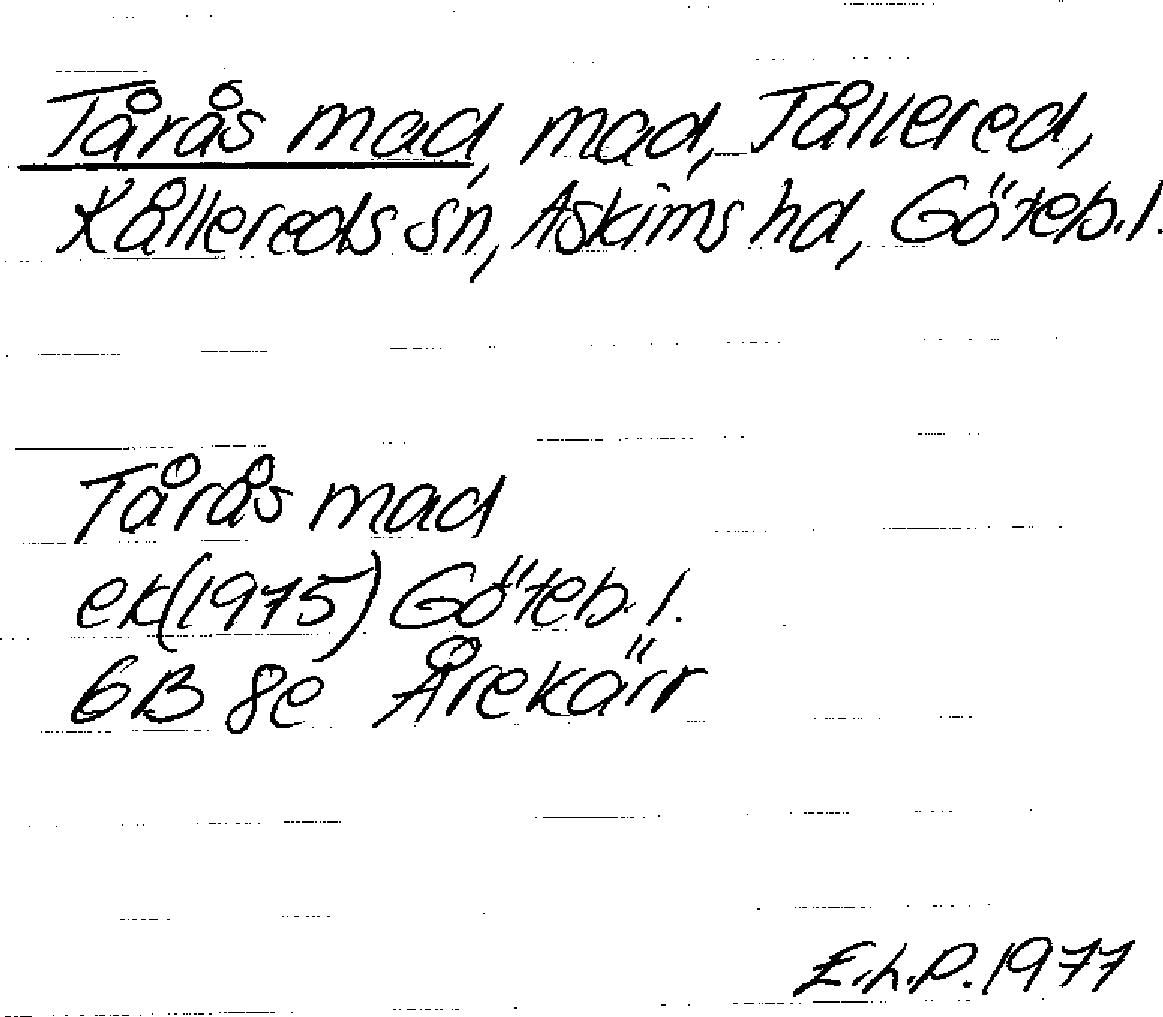 Tårås mad, mad, Tållered,
Kållereds sn, Askims hd, Göteb. l.
Tårås mad
ek (1975) Göteb. l.
6B 8e Årekärr
E.h.P. 1977